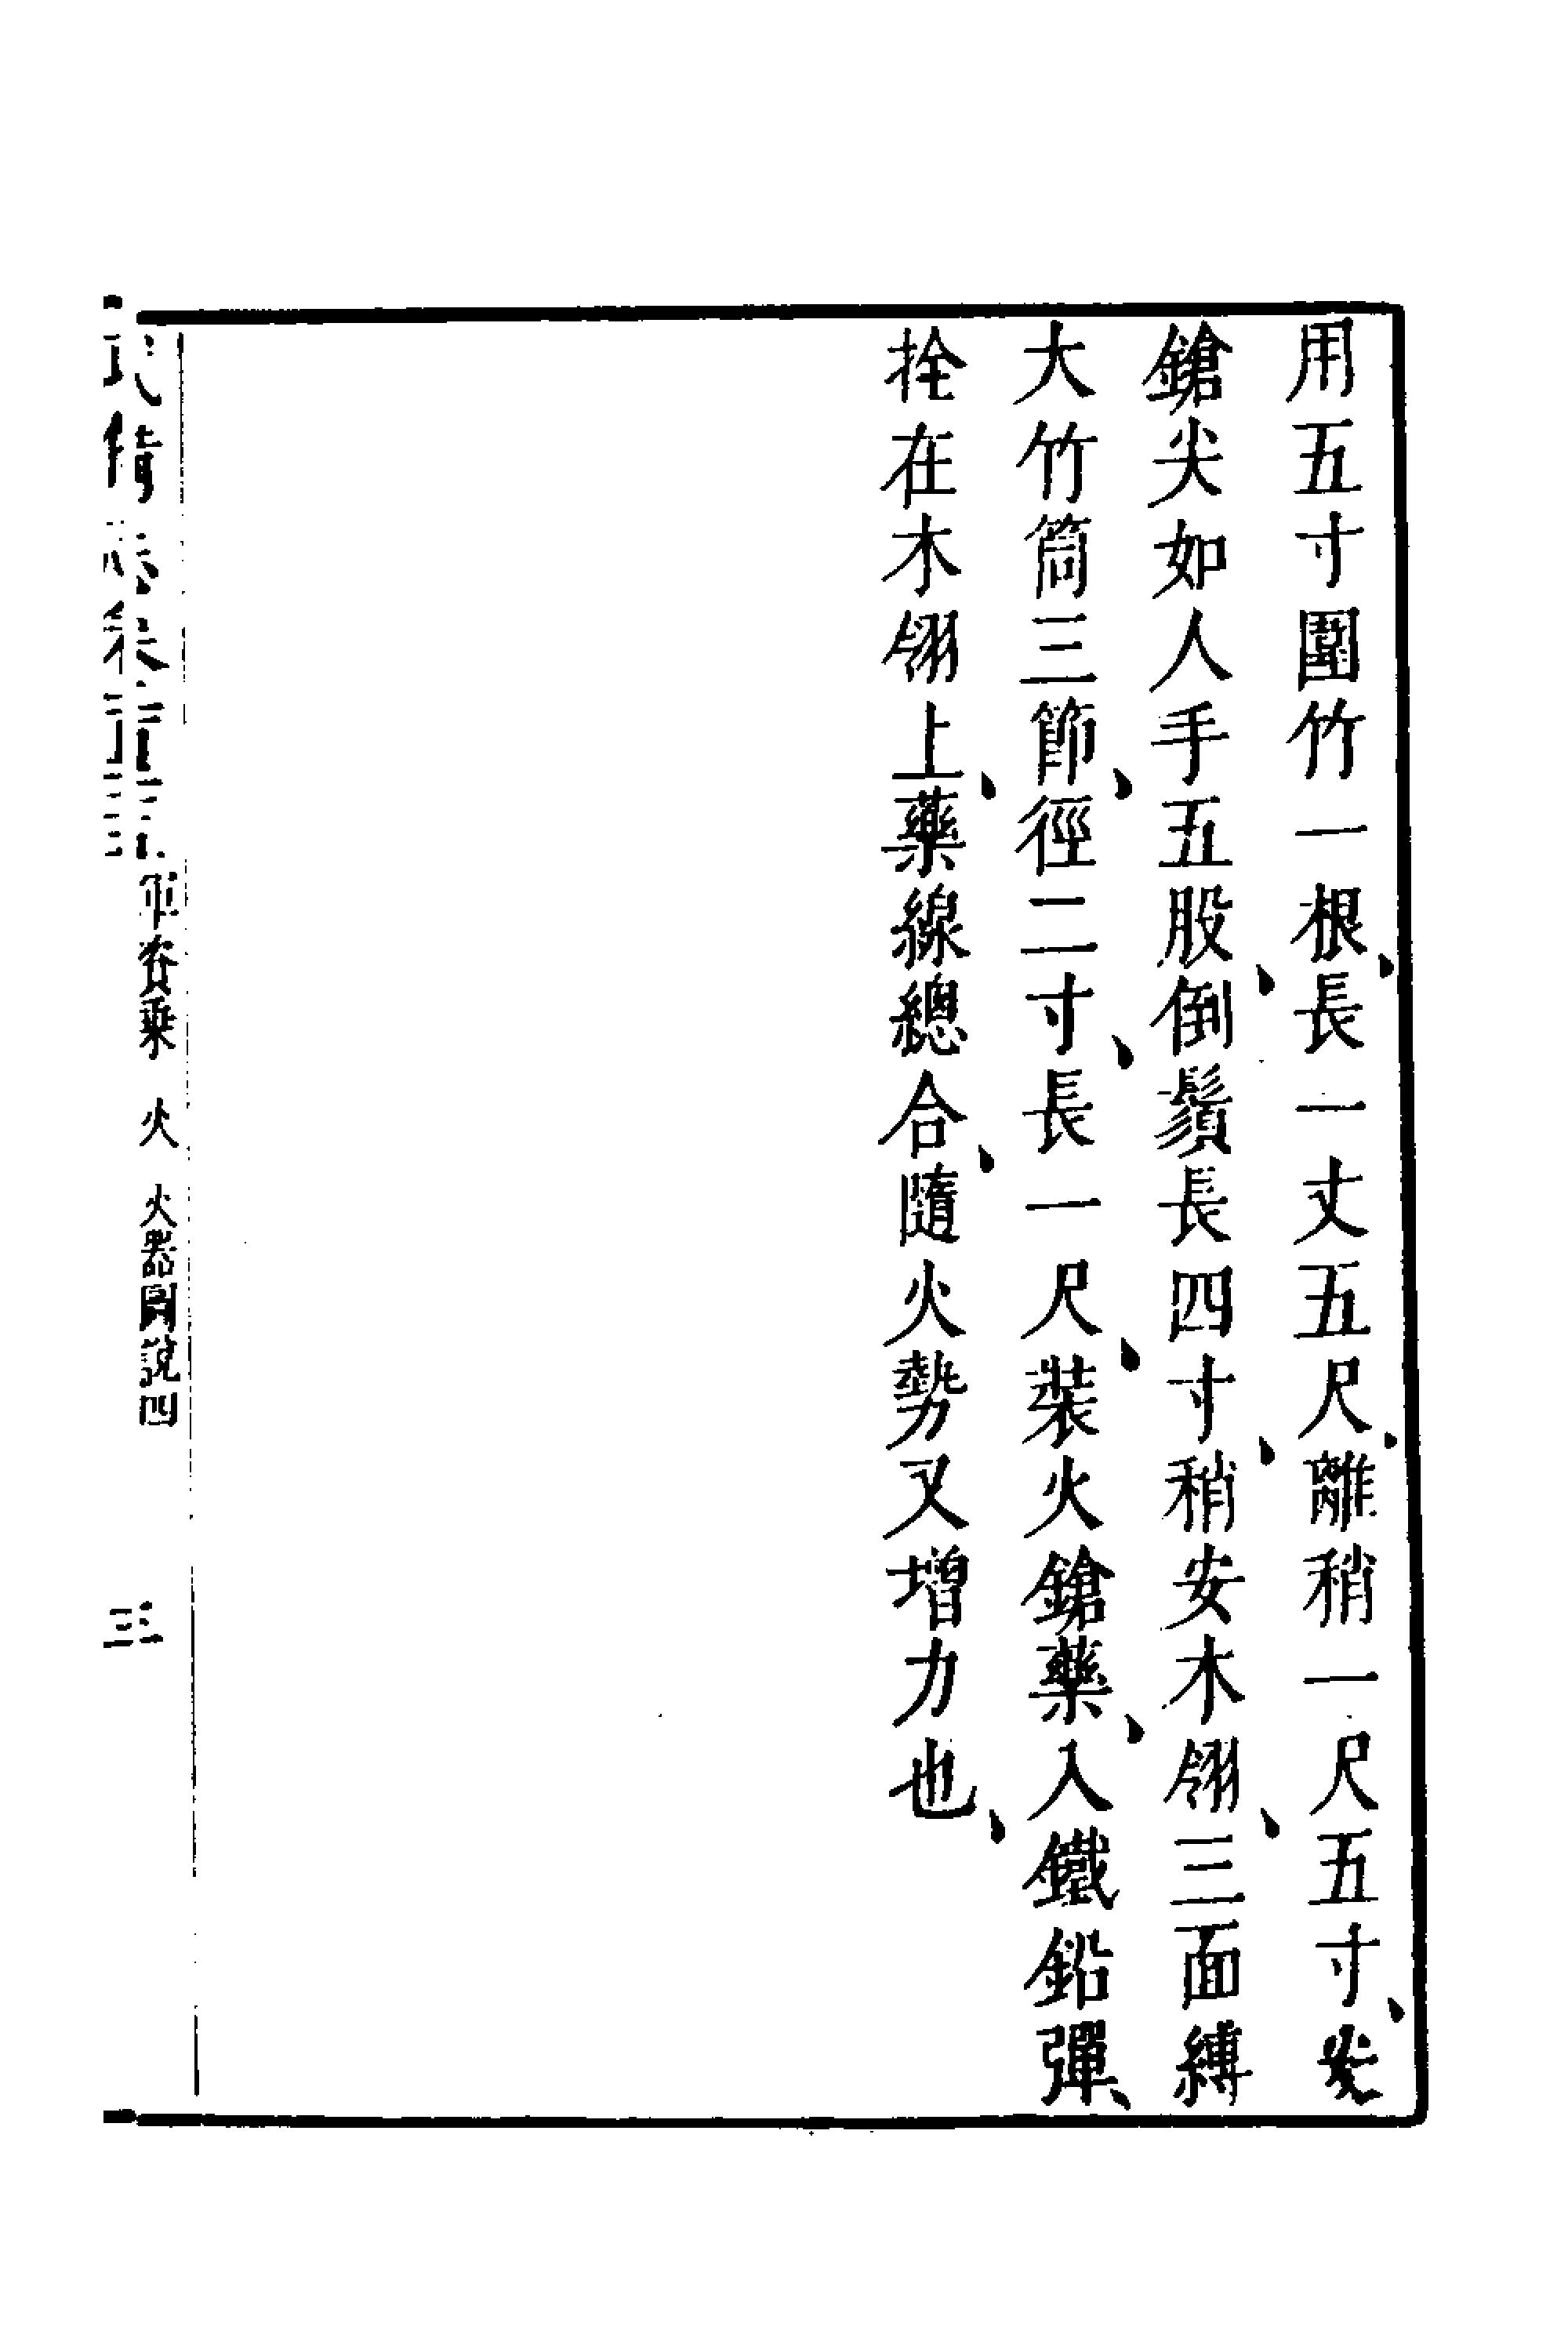 用五寸圍竹一根、長一丈五尺、離稍一尺五寸、安
鎗尖如人手五股、倒鬚長四寸、稍安木翎、三面縛
大竹筒三節、徑二寸、長一尺、裝火鎗藥、入鐵鉛彈、
拴在木翎上、藥線總合、隨火勢又增力也、
武備志卷 軍資乘 火 火器圖說四 三